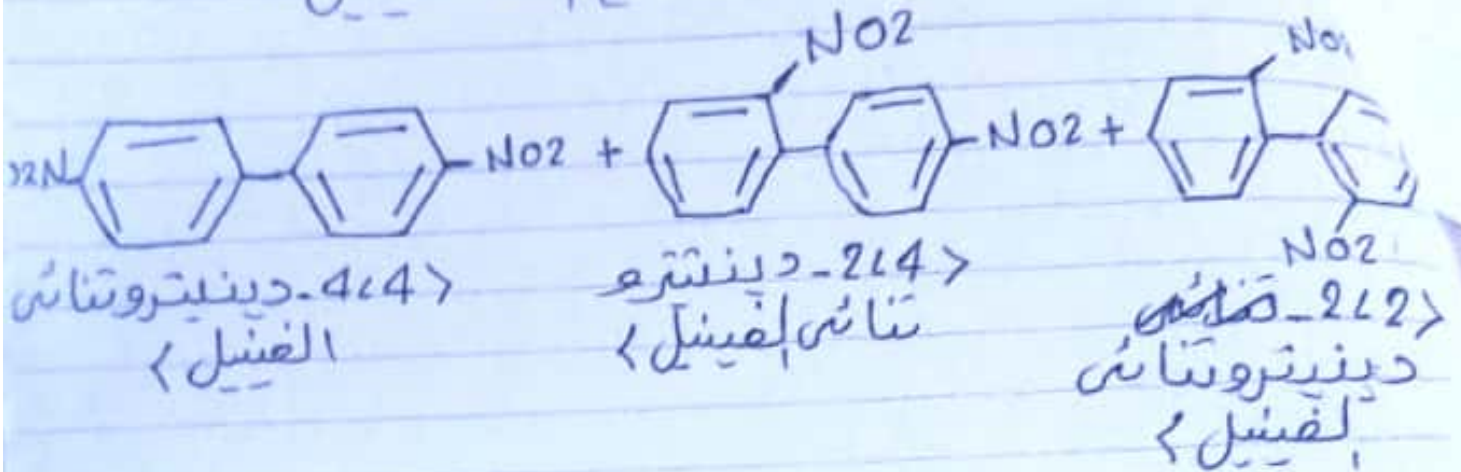 O2N NO2 + NO2 NO2 + NO2 NO2
<4،4-دينيتروثنائي
الفينيل>
<2،4-دينتترو
ثنائي الفينيل>
<2،2-
دينيتروثنائي
لفينيل>